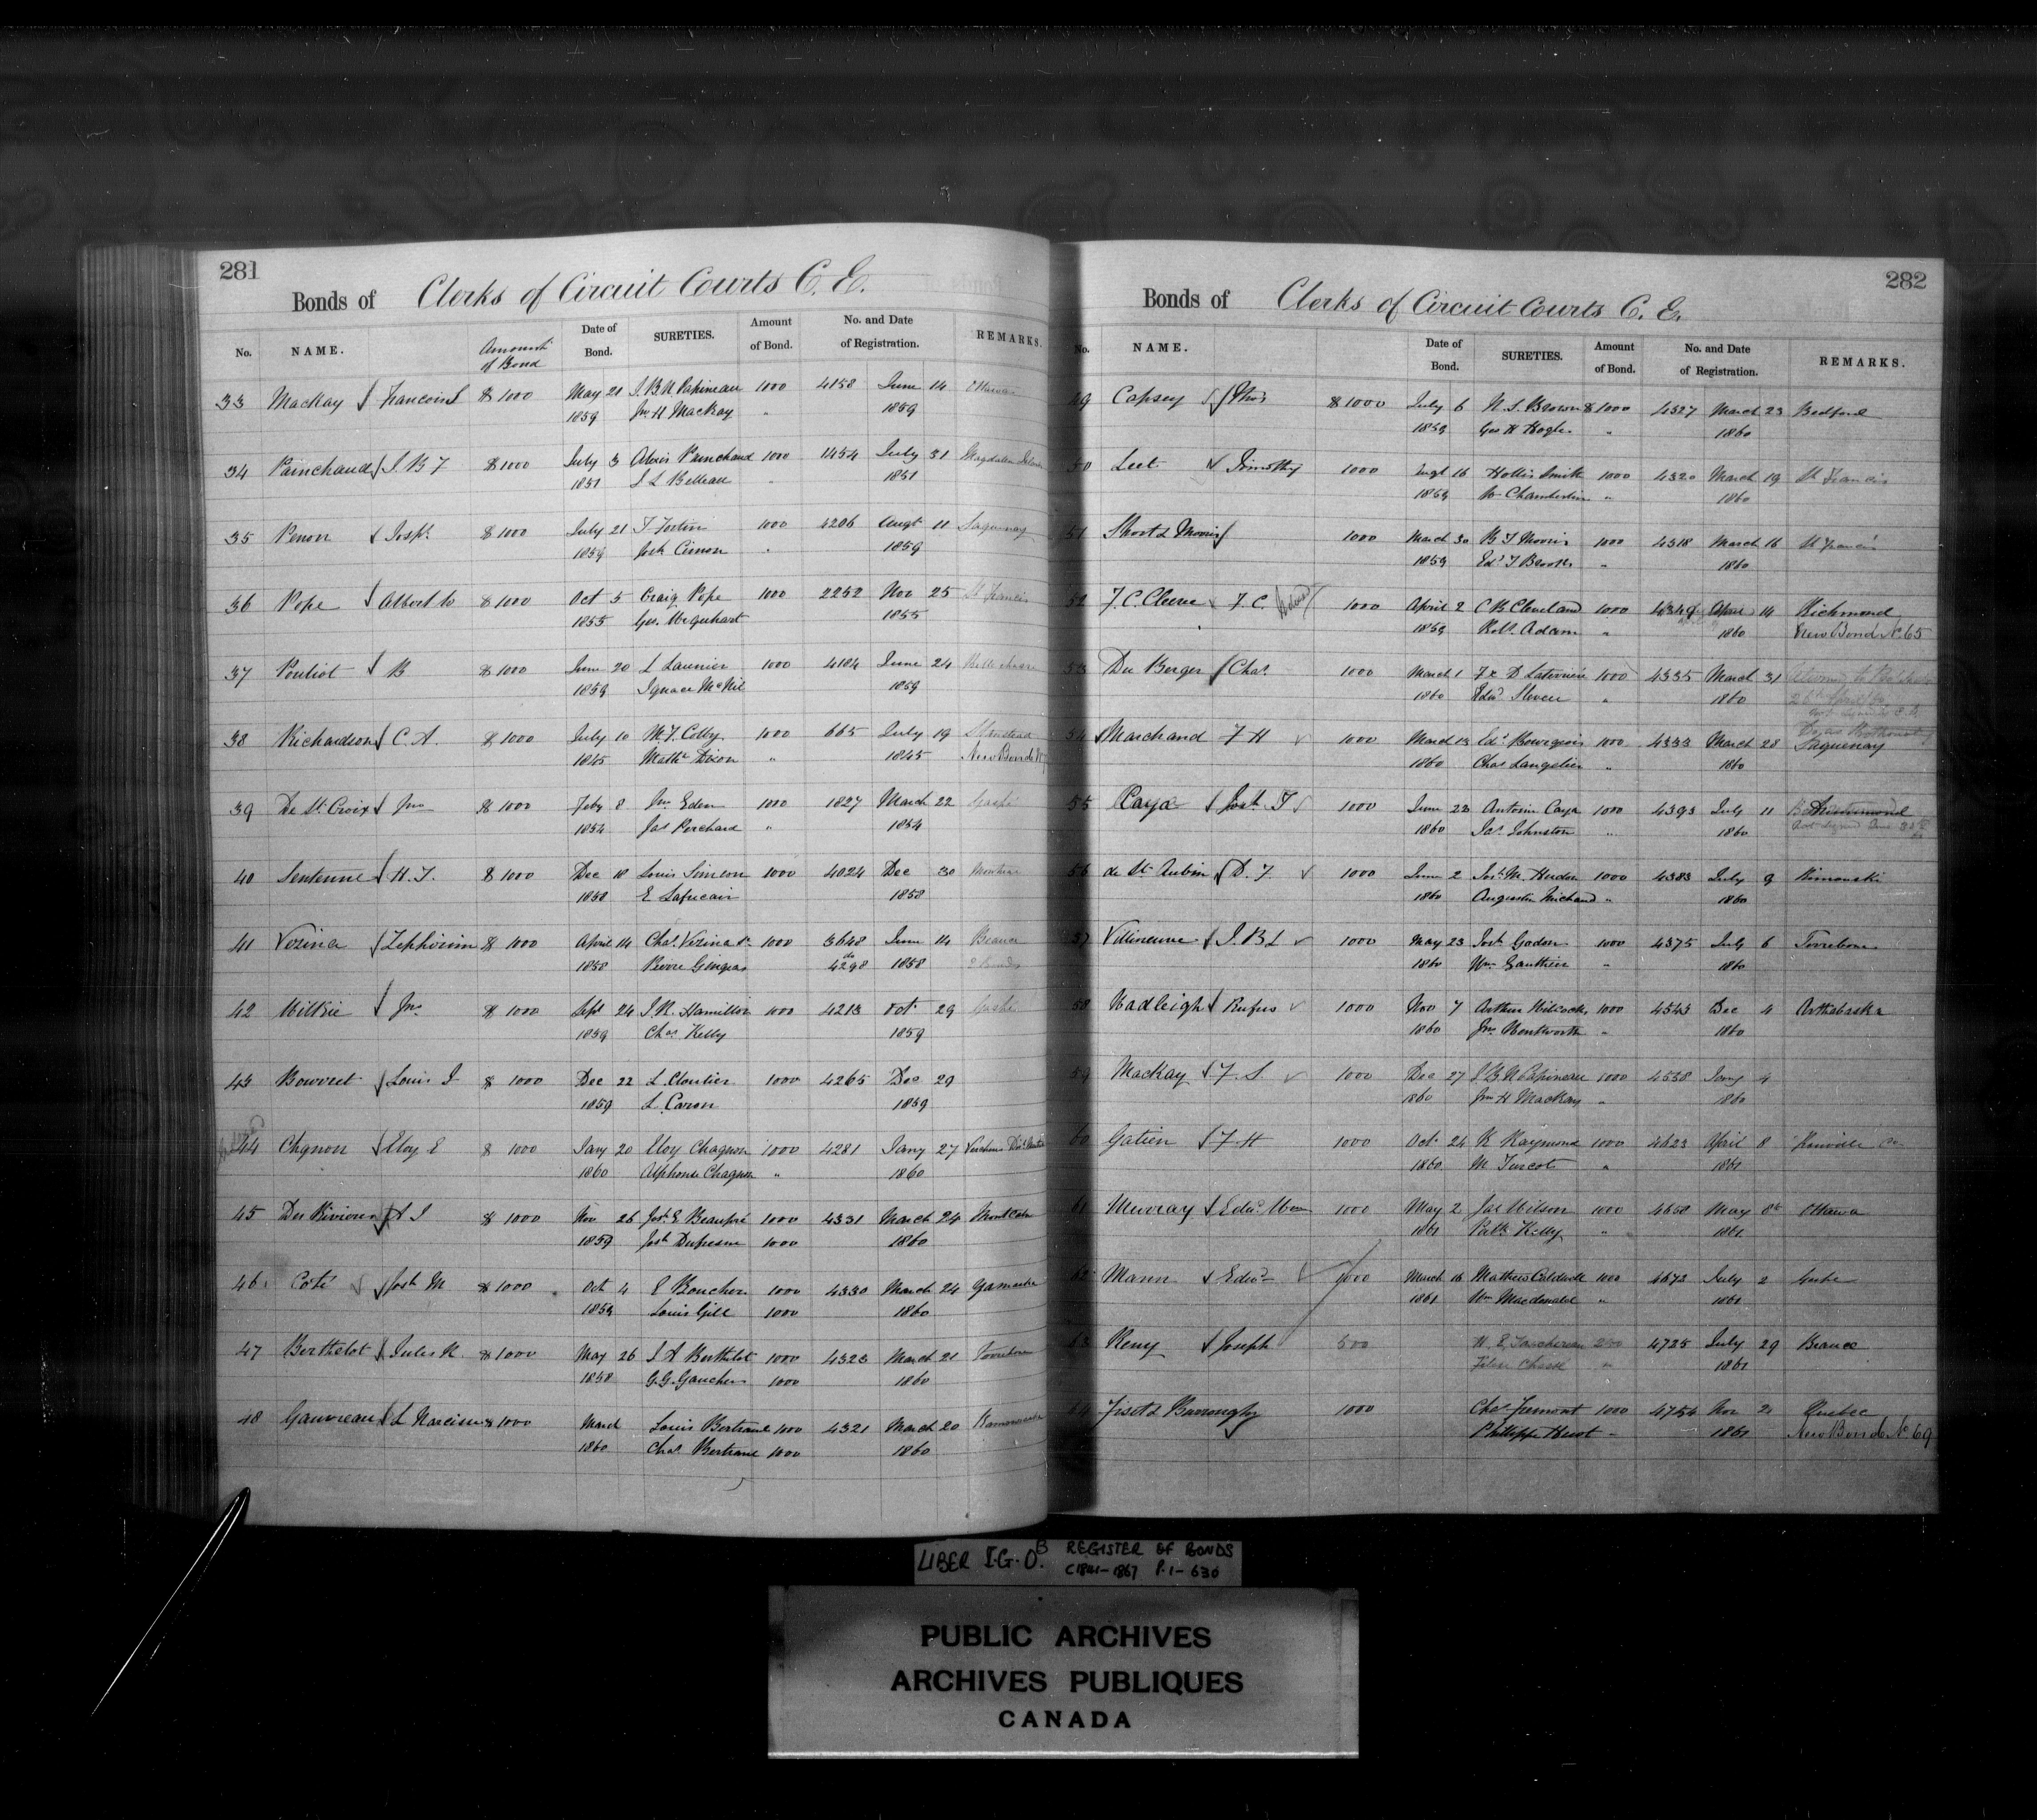 281
Bonds of Clerks of Circuit Courts C. E.
No. NAME. Amount of Bond Date of Bond. SURETIES. Amount of Bond. No. and Date of Registration. REMARKS.
33 Mackay Francois S $ 1000 May 21 J. B. N Papineau 1000 4158 June 14 Ottawa
1859 Jno H MacKay " 1859
34 Painchaud J. B F $ 1000 July 3 Alexis Painchaud 1000 1454 July 31 Magdalen Islands
1851 J L Belleau " 1851
35 Perron Josph $ 1000 July 21 T Fortin 1000 4206 Augt 11 Saguenay
1859 Josh Cimon " 1859
36 Pope Albert W $ 1000 Oct 5 Craig Pope 1000 2252 Nov 25 St Francis
1855 Geo. Urquhart 1855
37 Pouliot B $ 1000 June 20 L Launier 1000 4184 June 24 Bellechasse
1859 Ignace McNil 1859
38 Richardson C. A. $ 1000 July 10 M. F. Colby 1000 665 July 19 Stanstead
1845 Matth Dixon " 1845 New Bond
39 De St. Croix Jno $ 1000 Feby 8 Jno Eden 1000 1827 March 22 Gaspé
1854 Jas Perchard " 1854
40 Sentenne H. T. $ 1000 Dec 18 Louis Simeon 1000 4024 Dec 30
1858 E Lafricain 1858
41 Vezina Zephirin $ 1000 April 14 Chas. Vezina Sr 1000 3648 June 14 Beauce
1858 Pierre Gingras do 4298 1858 2 Bonds
42 Wilkie Jno $ 1000 Sept 24 J. R. Hamilton 1000 4213 Oct 29 Gaspé
1859 Chas Kelly 1859
43 Bowvret Louis J $ 1000 Dec 22 L. Cloutier 1000 4265 Dec 29
1859 L. Caron 1859
44 Chgnon Eloy E $ 1000 Jany 20 Eloy Chagnon 1000 4281 Jany 27
1860 Alphonse Chagnon " 1860
45 Des Rivieres A I $ 1000 Nov 26 Josh E Beaupré 1000 4331 March 24 Montcalm
1859 Josh Dufresne 1000 1860
46 Coté Josh M $ 1000 Oct 4 E Boucher 1000 4330 March 24 Yamaska
1859 Louis Gill 1000 1860
47 Berthelot Jules R. $ 1000 May 26 J A Berthelot 1000 4323 March 21 Terrebonne
1858 G. G. Gaucher 1000 1860
48 Gauvreau L Narcisse $ 1000 March Louis Bertrand 1000 4321 March 20 Kamouraska
1860 Chas Bertrand 1000 1860
282
Bonds of Clerks of Circuit Courts C. E.
No. NAME. Date of Bond. SURETIES. Amount of Bond. No. and Date of Registration. REMARKS.
49 Capsey Thos $ 1000 July 6 N. S. Brown $ 1000 4327 March 23 Bedford
1859 Geo H Hogle " 1860
50 Leet Timothy 1000 Augt 16 Hollis Smith 1000 4320 March 19 St Francis
1859 Wm Chamberlin " 1860
51 Short & Morris 1000 March 30 B F Morris 1000 4318 March 16 St Francis
1859 Edd F Brooks " 1860
52 F. C. Cleeve F. C. 1000 April 2 C B Cleveland 1000 4349 April 14 Richmond
1859 Robt. Adam " 1860 New Bond No. 65
53 Du Berger Chas. 1000 March 1 Fx D Laterriere 1000 4335 March 31
1860 Edwd Sleven " 1860
54 Marchand F H 1000 March 13 Edd Bourgeois 1000 4333 March 28 Saguenay
1860 Chas Langelier " 1860
55 Caya Josh. T 1000 June 23 Antoine Caya 1000 4393 July 11 Drummond
1860 Jas. Johnston " 1860
56 de St. Aubin D. F. 1000 June 2 Josh. M. Hudon 1000 4383 July 9 Rimouski
1860 Augustin Michaud " 1860
57 Villineuve J. B L 1000 May 23 Josh Godon 1000 4375 July 6 Terrebonne
1860 Wm. Gauthier " 1860
58 Wadleigh Rufus 1000 Nov 7 Arthur Wilcocks 1000 4543 Dec 4 Arthabaska
1860 Jno. Wentworth " 1860
59 MacKay F. S. 1000 Dec 27 J B N Papineau 1000 4558 Jany 4
1860 Jno H MacKay " 1860
60 Gatien F. H 1000 Oct. 24 R Raymond 1000 4623 April 8
1860 M Turcot " 1861
61 Murray Edwd Wm 1000 May 2 Jas Wilson 1000 4658 May 8th Ottawa
1861 Patk Kelly " 1861
62 Mann Edwd 1000 March 16 Mathew Caldwell 1000 4673 July 2 Gaspe
1861 Wm Macdonald " 1861
63 Remy Joseph 500 N. E. Taschereau 250 4725 July 29 Beauce
1861
64 Fiset & Burroughs 1000 Chas. Fremont 1000 4754 Nov 21 Quebec
Phillippe Huot " 1861 New Bond No. 69
LIBER I.G.O.B REGISTER OF BONDS
C1841-1867 P.1-630
PUBLIC ARCHIVES
ARCHIVES PUBLIQUES
CANADA